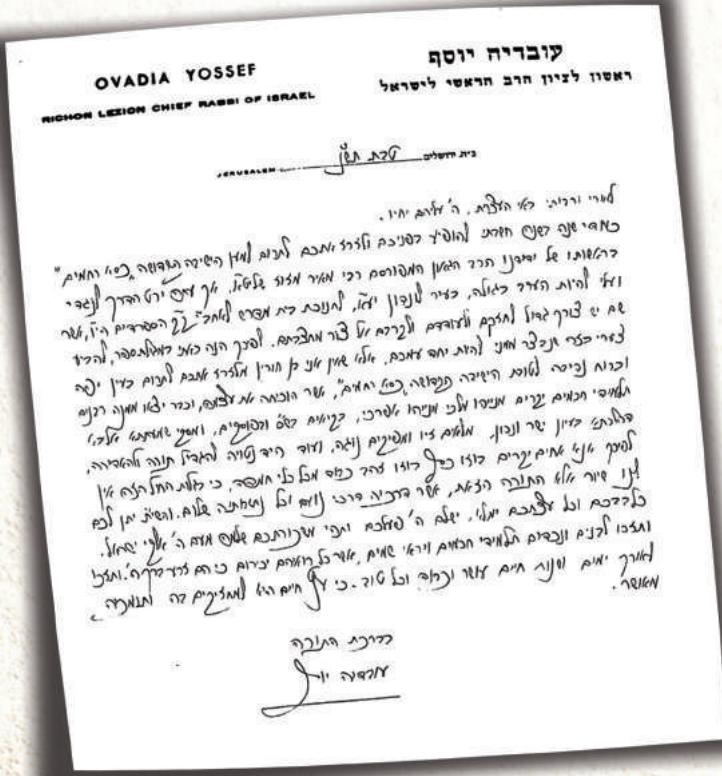 OVADIA YOSSEF
RICHON LEZION CHIEF RABBI OF ISRAEL
עובדיה יוסף
ראשון לציון הרב הראשי לישראל
JERUSALEM טבת תש"ן בית ירושלים
למורי ורבותי באי העצרת, ה' עליהם יחיו.
כמדי שנה בשנה חשבתי להופיע בפניכם ולזרז אתכם לתרום למען הישיבה הקדושה "כסא רחמים"
בראשותו של ידידנו הרב הגאון המפורסם רבי מאיר מזוז שליט"א, אך הדרך לנגדי
ועלי להיות הערב בגולה, בעיר לונדון יע"א, לחנוכת בית מדרש לאחב"י הספרדים הי"ו, אשר
שם יש צורך גדול לחזקם ולעודדם ולקרבם אל צור מחצבתם. לפיכך הנה באתי במגילת ספר, להביע
צערי שנבצר ממני להיות יחד עמכם, אלא שאין אני בן חורין מלזרז אתכם לתרום בעין יפה
וברוח נדיבה לטובת הישיבה הקדושה "כסא רחמים", אשר הוכיחה את עצמה, וכבר יצאו ממנה רבנים
תלמידי חכמים יקרים מניהו מלכי מניהו אפרכי, בקיאים בש"ס ובפוסקים, ומסקי שמעתתא אליבא
דהלכתא בעיון ישר ונבון. מלאים זיו ומפיקים נוגה, ועוד היד נטויה להגדיל תורה ולהאדירה,
לפיכך אנא אחים יקרים בוזו כסף בוזו זהב כבוד מכל כלי חמדה, כי הזה אין
לנו שיור אלא התורה הזאת, אשר דרכיה דרכי נועם וכל נתיבותיה שלום. והשי"ת יתן לכם
כלבבכם וכל עצתכם ימלא, ישלם ה' פעלכם ותהי משכורתכם שלמה מעם ה' אלקי ישראל.
ותזכו לבנים ונכדים תלמידי חכמים ויראי שמים, אשר כל רואיהם יכירום כי הם זרע ברך ה'. ותזכו
לאורך ימים ושנות חיים עושר וכבוד וכל טוב. כי עץ חיים היא למחזיקים בה ותומכיה
מאושר.
בברכת התורה
עובדיה יוסף